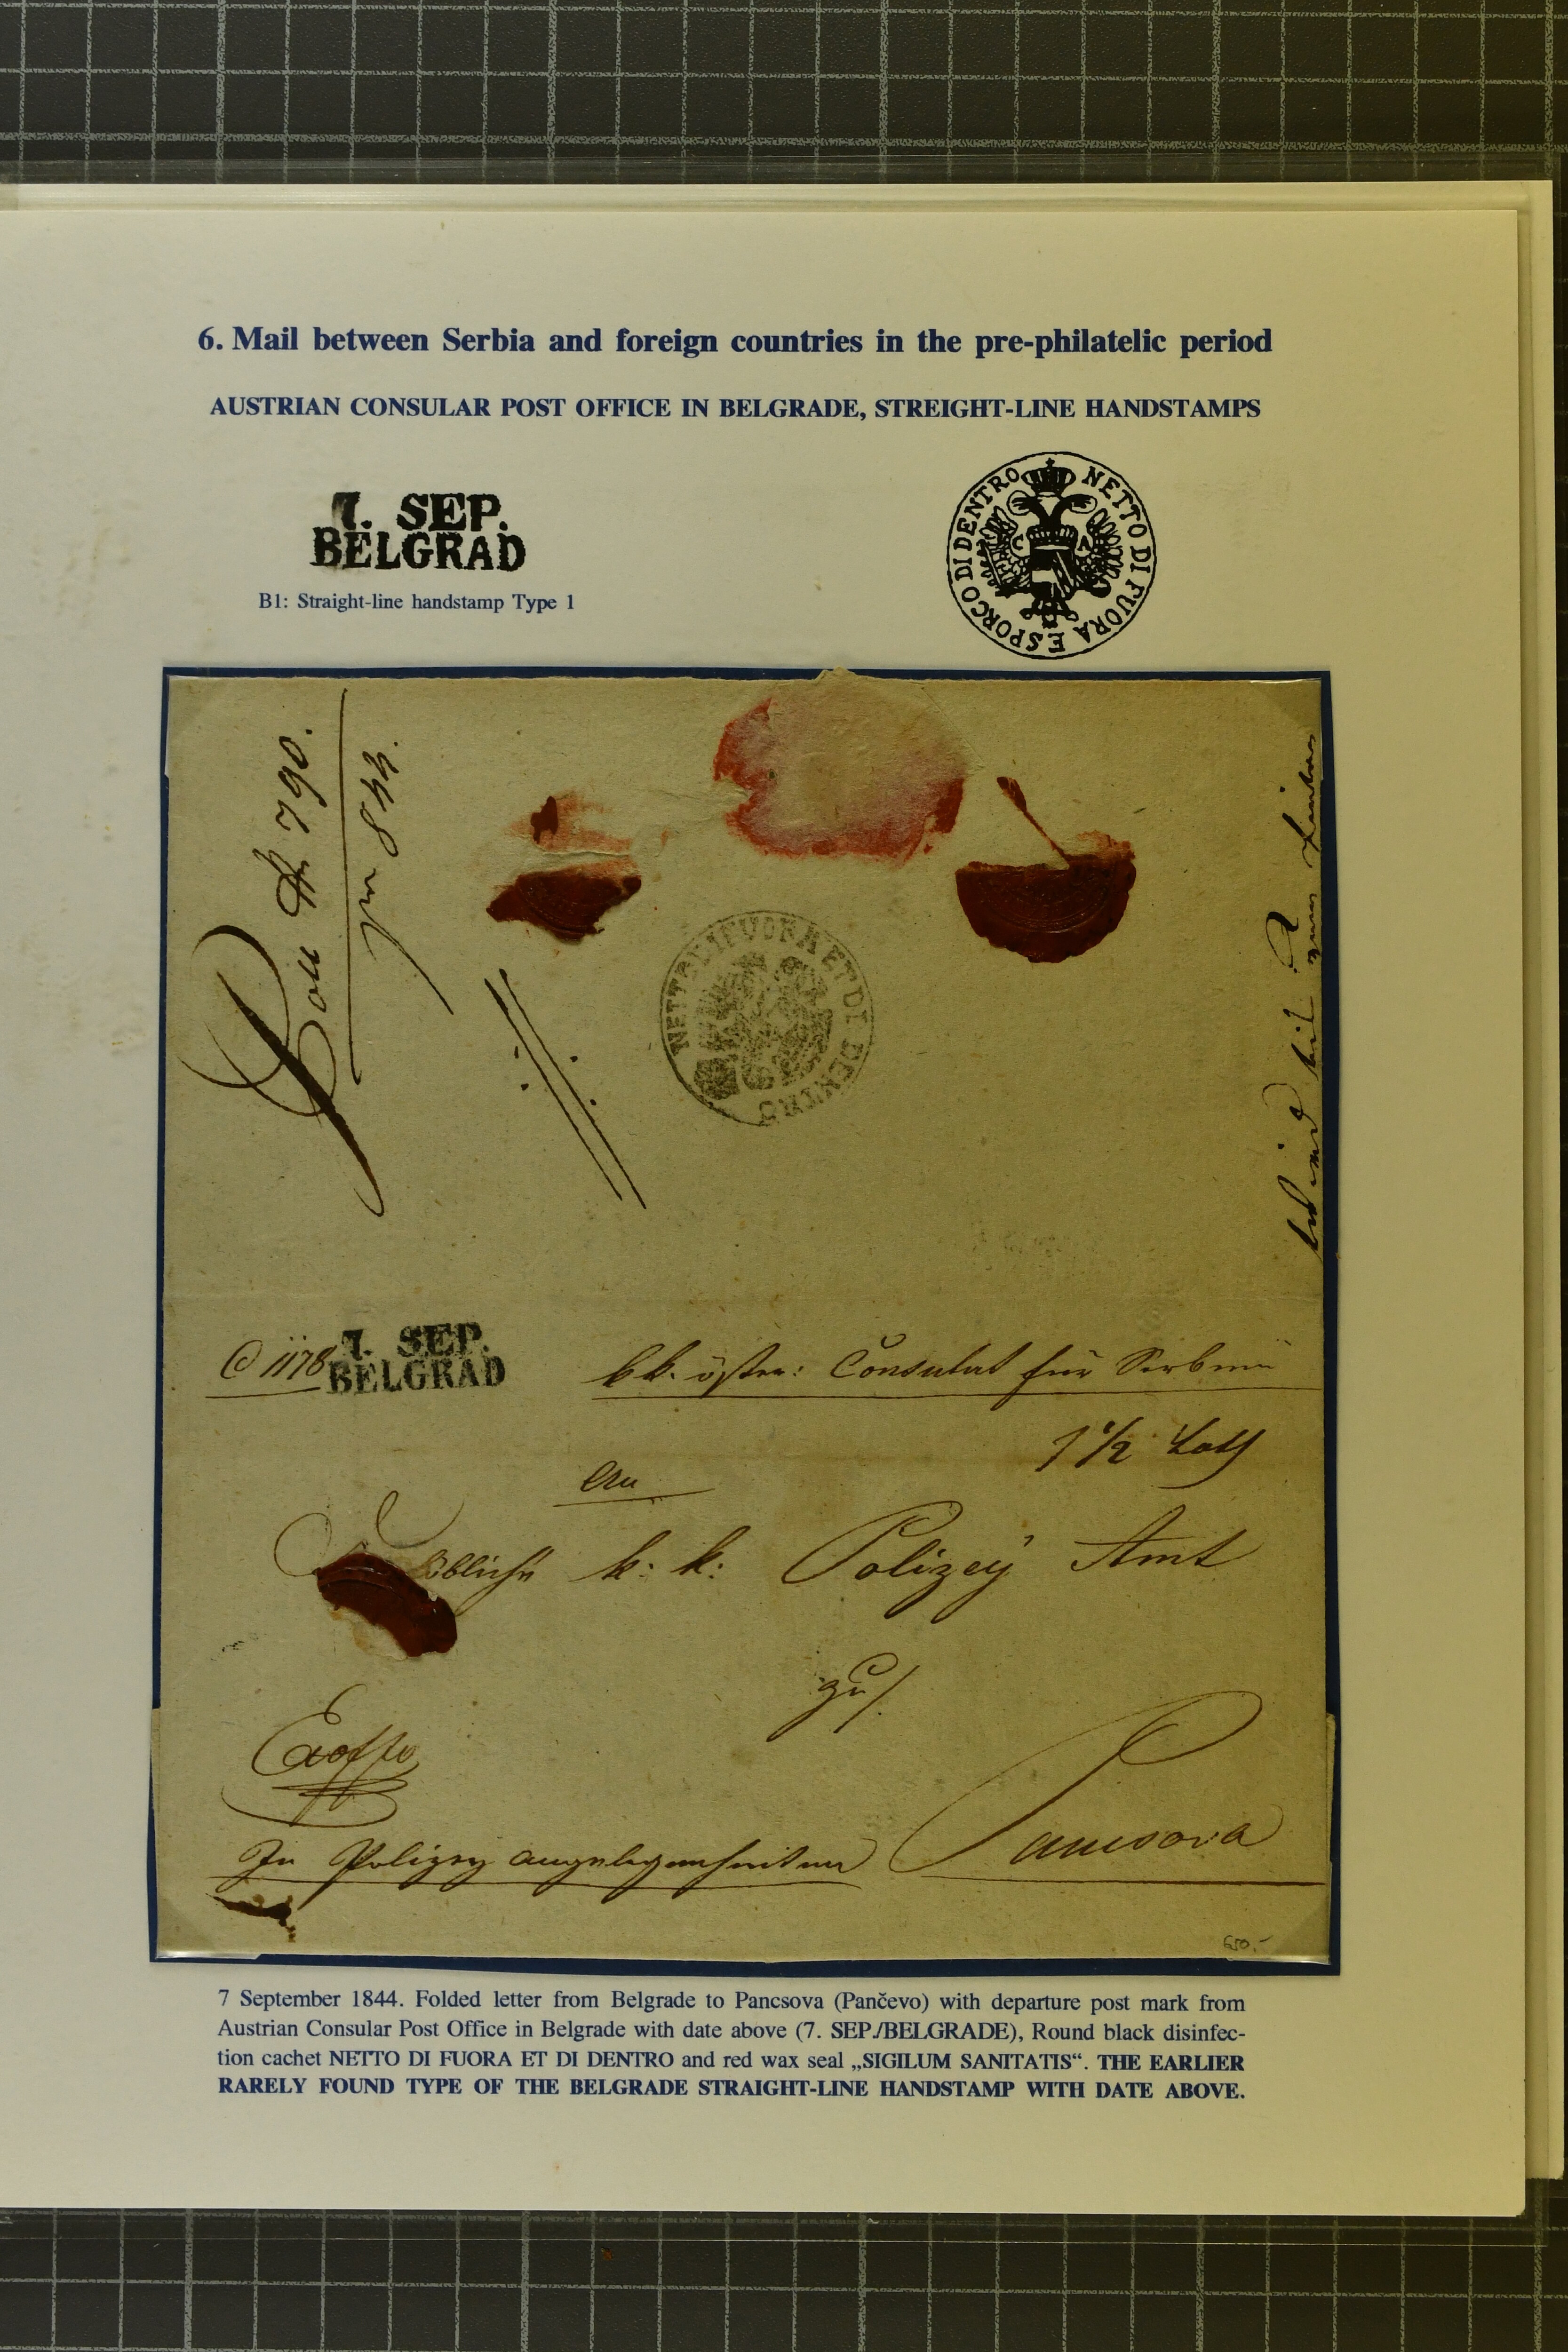 6. Mail between Serbia and foreign countries in the pre-philatelic period
AUSTRIAN CONSULAR POST OFFICE IN BELGRADE, STREIGHT-LINE HANDSTAMPS
7. SEP.
BELGRAD
B1: Straight-line handstamp Type 1
NETTO DI FUORA E SPORCO DI DENTRO
790.
844
NETTO DI FUORA ET DI DENTRO
1178
7. SEP.
BELGRAD
kk. österr: Consulat für Serbien
1 1/2 Loth
An
Löbliche k: k: Polizey Amt
zu/.
Exoffo
In Polizey angelegenheiten
Pancsova
650.-
7 September 1844. Folded letter from Belgrade to Pancsova (Pančevo) with departure post mark from
Austrian Consular Post Office in Belgrade with date above (7. SEP./BELGRADE), Round black disinfec-
tion cachet NETTO DI FUORA ET DI DENTRO and red wax seal „SIGILUM SANITATIS“. THE EARLIER
RARELY FOUND TYPE OF THE BELGRADE STRAIGHT-LINE HANDSTAMP WITH DATE ABOVE.